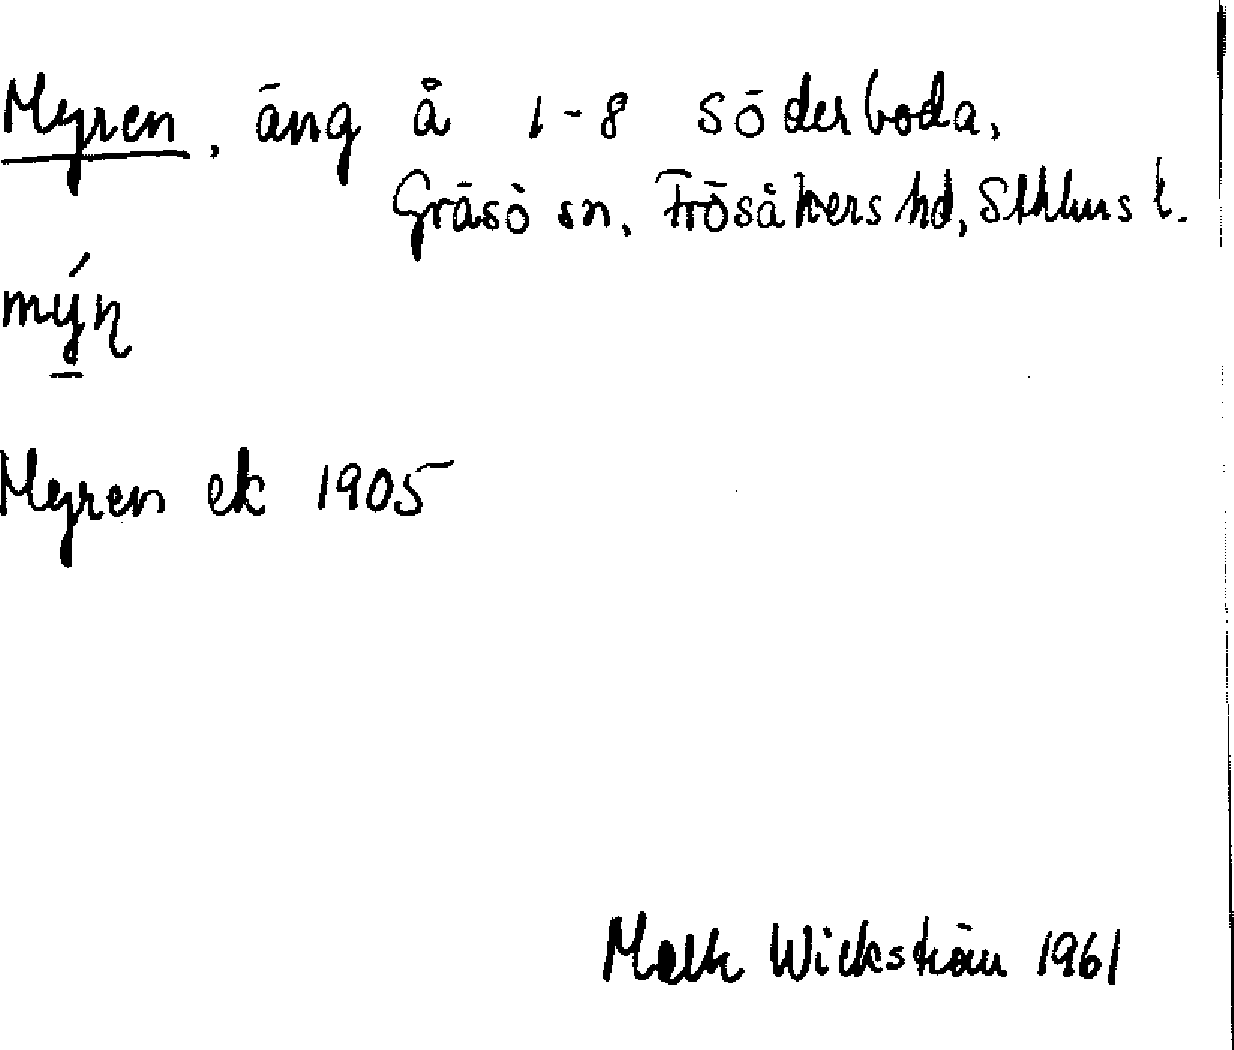 Myren, äng å 1-8 Söderboda,
Gräsö sn, Frösåkers hd, Sthlms l.
mýn̥
Myren ek 1905
Wickström 1961